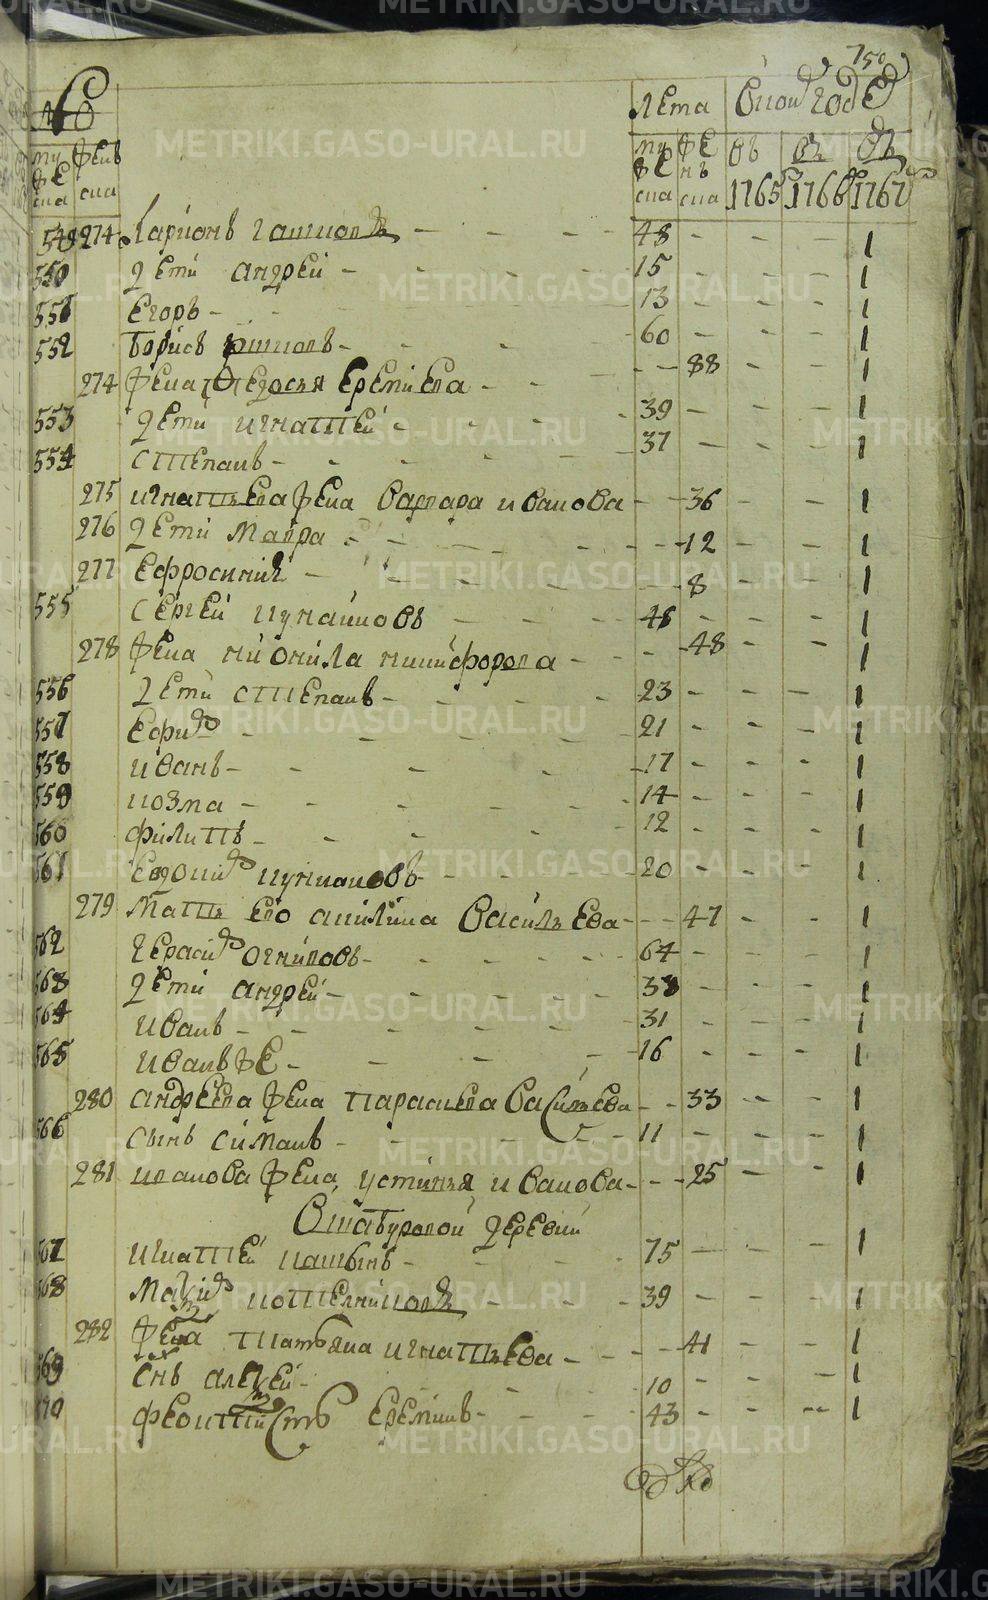 METRIKI.GASO-URAL.RU
750
лета
в коѡ годѣ
му же ска
фенъ ска
му же ска
же нъ ска
въ 1765
въ 1766
въ 1767
549 274 Ларионъ 48 - - - 1
550 дети андрей - 15 - - - 1
551 Егоръ - 13 - - - 1
552 борисъ - 60 - - - 1
274 жена Федосья Еремеева - - 88 - - 1
553 дети игнатей - 39 - - - 1
554 степанъ - 37 - - - 1
275 игнатьева жена варвара иванова - - 36 - - 1
276 дети мавра - - 12 - - 1
277 Ефросиния - - 8 - - 1
555 сергей 48 - - - 1
278 жена никифорова - - 48 - - 1
556 дети степанъ - 23 - - - 1
557 Ефимъ - 21 - - - 1
558 иванъ - 17 - - - 1
559 козма - 14 - - - 1
560 филипъ - 12 - - - 1
561 Евдокимъ 20 - - - 1
279 мать его акилина василъева - - 47 - - 1
562 герасимъ 64 - - - 1
563 дети андрей - 38 - - - 1
564 иванъ - 31 - - - 1
565 иванъ же - 16 - - - 1
280 андреева жена парасковья василъева - - 33 - - 1
566 сынъ симанъ - 11 - - - 1
281 иванова жена устинья иванова - - 25 - - 1
деревни
567 игнатей 75 - - - 1
568 маѯимъ котелниковъ 39 - - - 1
282 жена татьяна игнатьева - - 41 - - 1
569 снъ алеѯей - 10 - - - 1
570 феоктистъ Еремин - 43 - - - 1